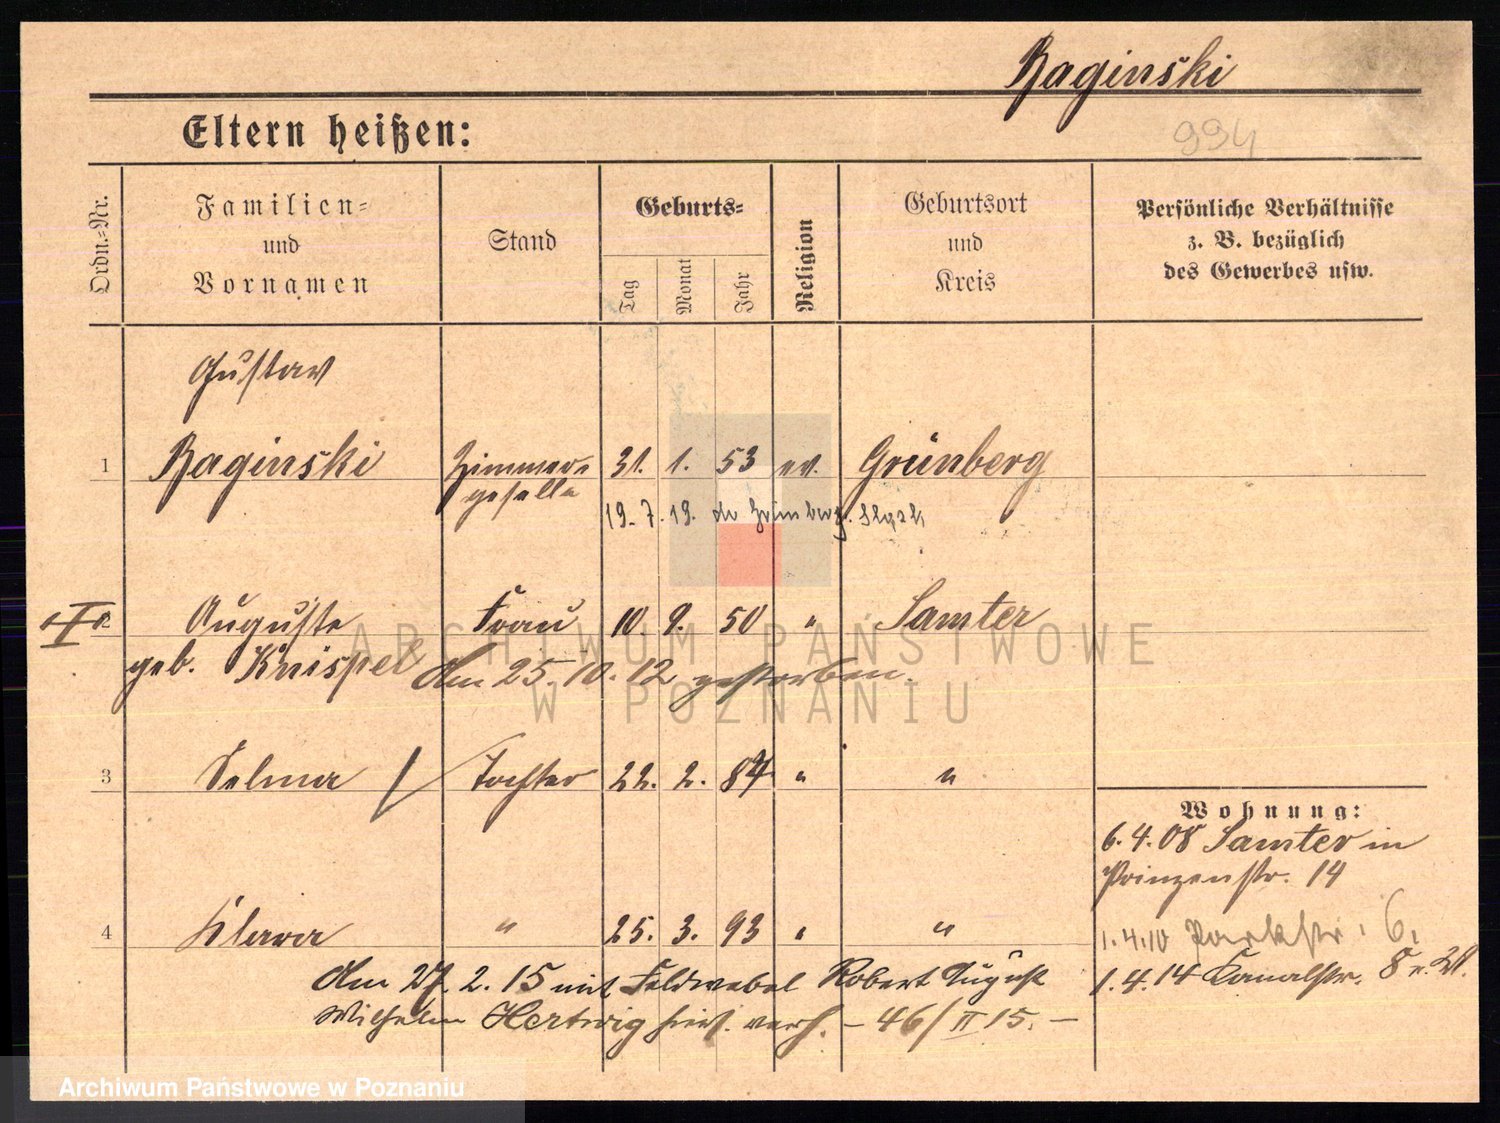 Raginski
994
Eltern heißen:
Ordn.-Nr.
Familien-
und
Vornamen
Stand
Geburts-
Tag
Monat
Jahr
Religion
Geburtsort
und
Kreis
Persönliche Verhältnisse
z. B. bezüglich
des Gewerbes usw.
Gustav
1 Raginski Zimmer- 31. 1. 53 ev. Grünberg
geselle
19. 7. 19. Grünberg
2 Auguste Frau 10. 9. 50 " Samter
geb. Knispel Am 25.10.12 gestorben.
ARCHIWUM PAŃSTWOWE
W POZNANIU
3 Selma / Tochter 22. 2. 84 " "
Wohnung:
6.4.08 Samter in
Prinzenstr. 14
4 Klara " 25. 3. 93 " "
1.4.10 Parkstr. 6.
1.4.14 Kanalstr. 8
Am 27.2.15 mit Feldwebel Robert August
Wilhelm Hertwig hier verh. - 46/II 15. -
Archiwum Państwowe w Poznaniu